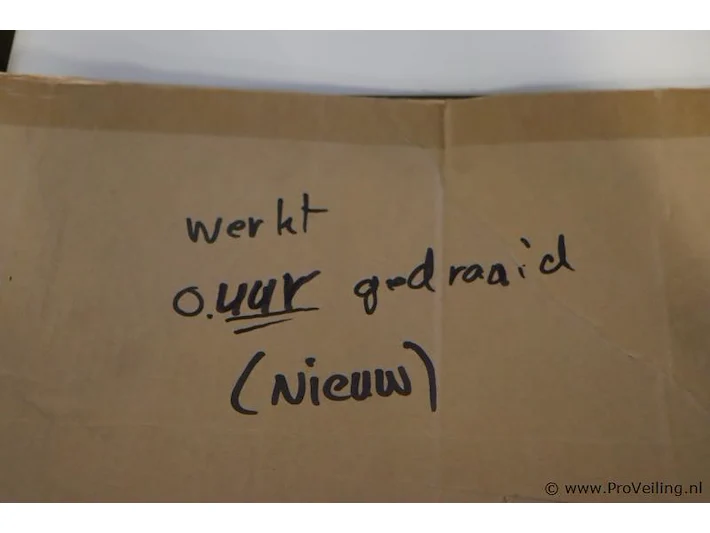 werkt
0.uur gedraaid
(Nieuw)
© www.ProVeiling.nl